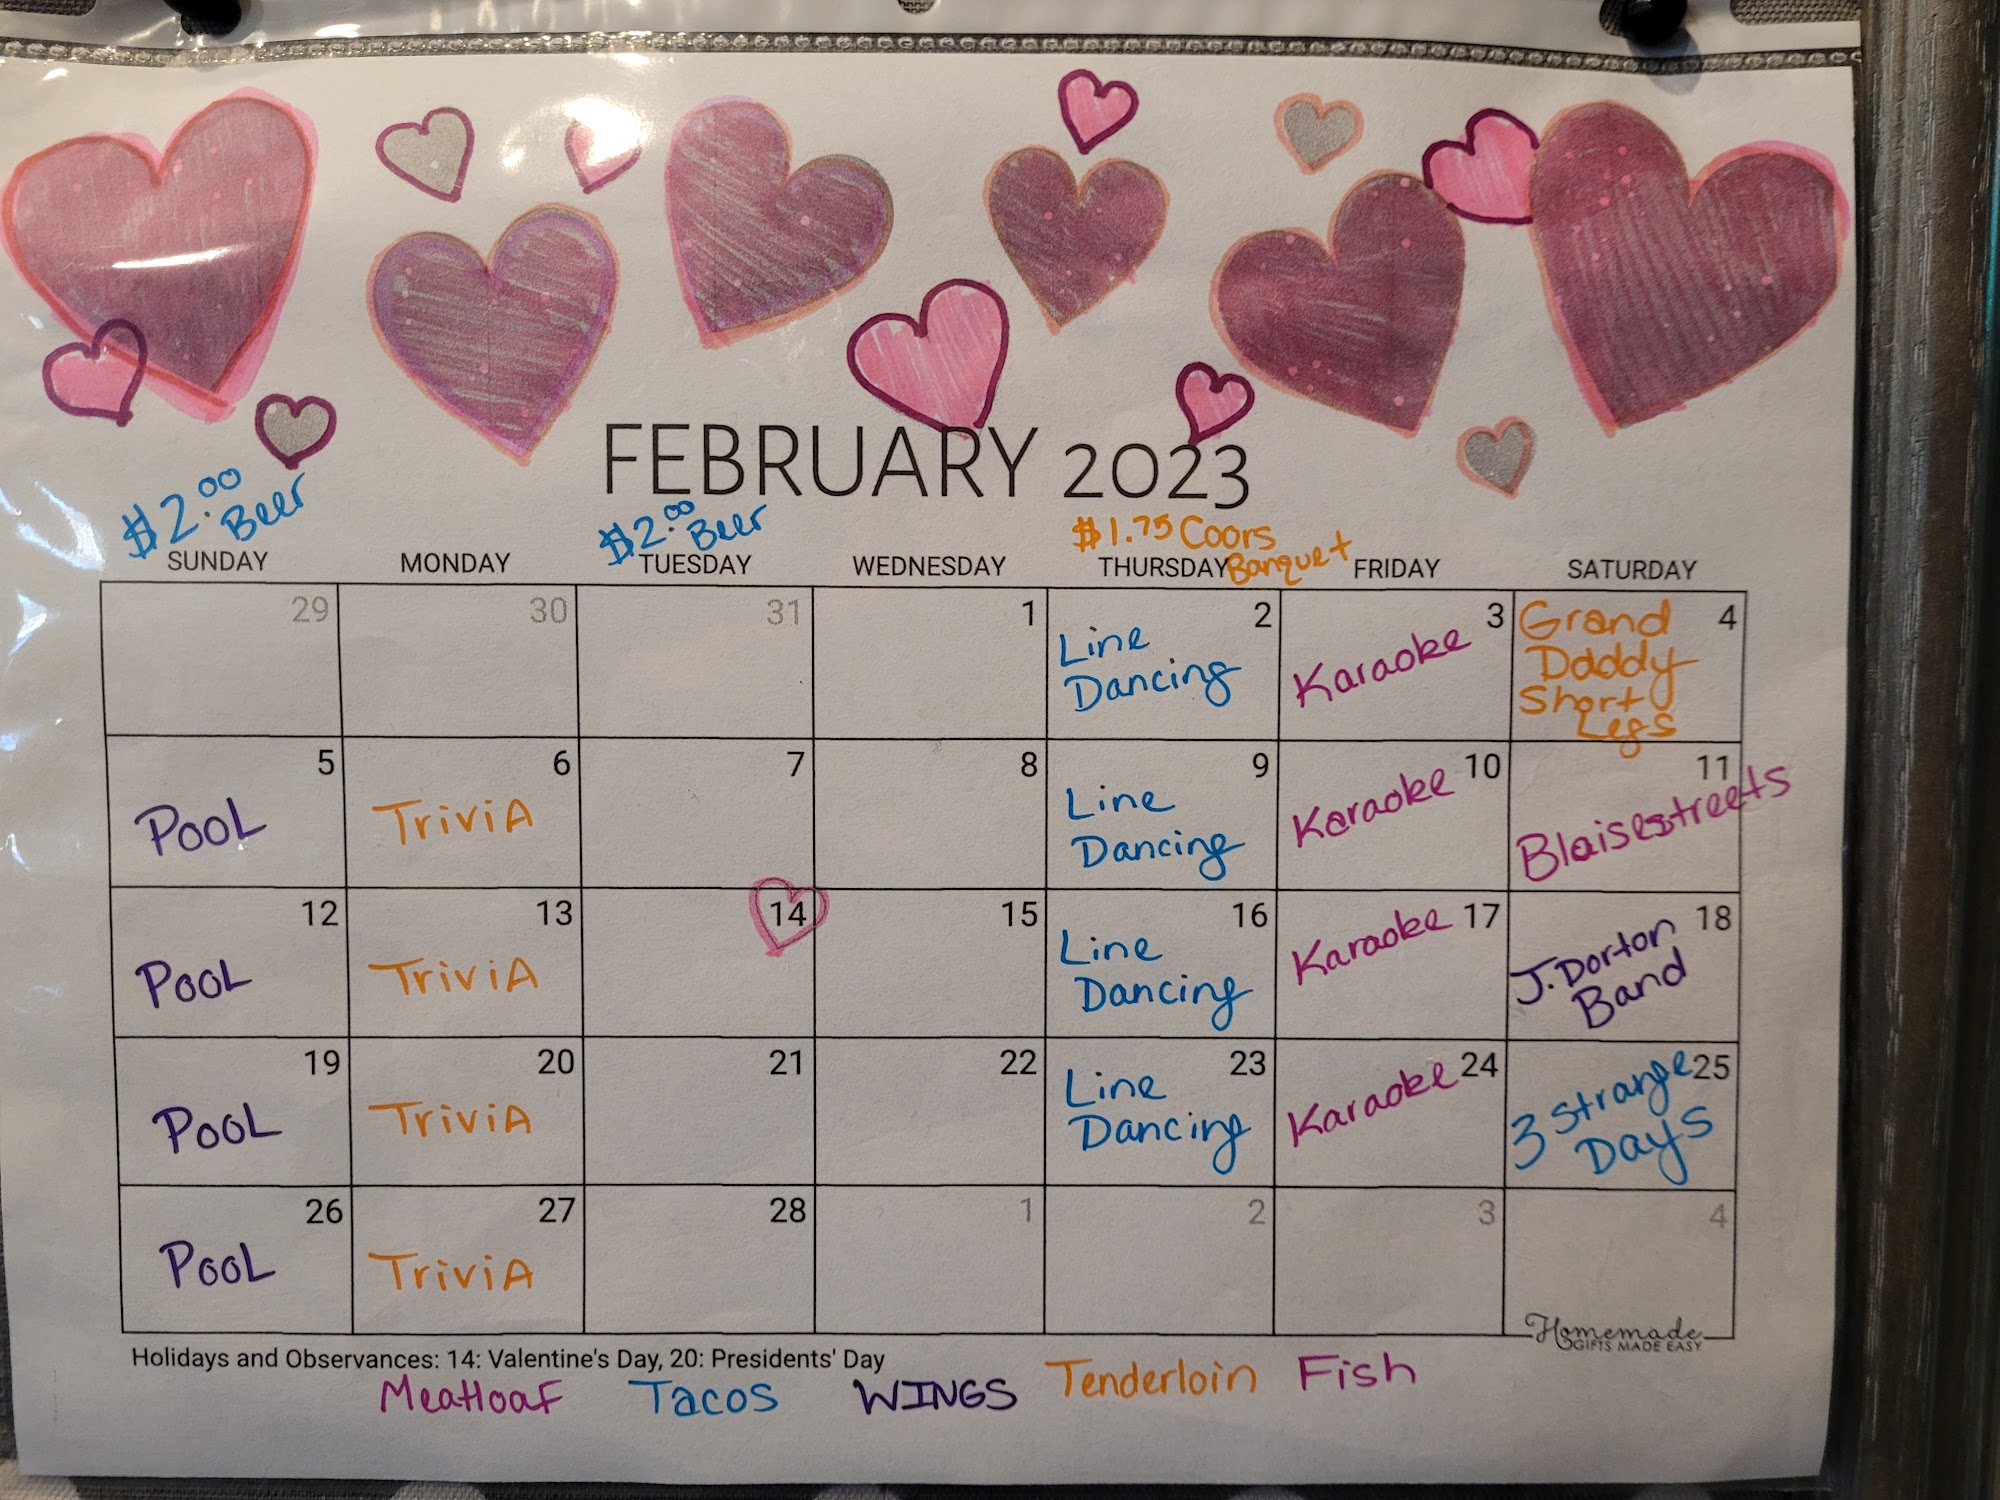 FEBRUARY 2023
$2.00 Beer
$2.00 Beer
$1.75 Coors
Banquet
SUNDAY MONDAY TUESDAY WEDNESDAY THURSDAY FRIDAY SATURDAY
29 30 31 1 2 3 4
Line
Dancing
Karaoke
Grand
Daddy
Short
Legs
5 6 7 8 9 10 11
Pool
TriviA
Line
Dancing
Karaoke
Blaisesstreets
12 13 14 15 16 17 18
Pool
TriviA
Line
Dancing
Karaoke
J. Dorton
Band
19 20 21 22 23 24 25
Pool
TriviA
Line
Dancing
Karaoke
3 Strange
Days
26 27 28 1 2 3 4
Pool
TriviA
Homemade
GIFTS MADE EASY
Holidays and Observances: 14: Valentine's Day, 20: Presidents' Day
Meatloaf Tacos WINGS Tenderloin Fish